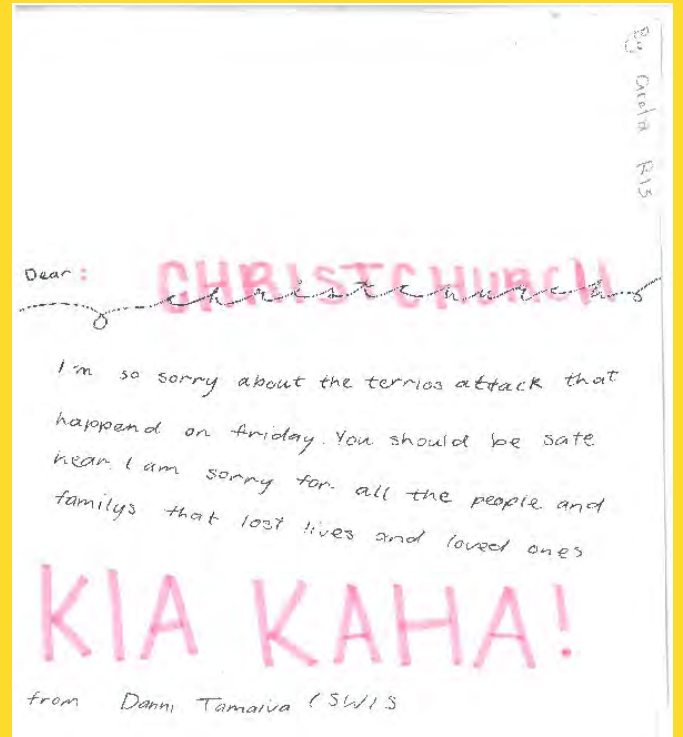 By Greta R15
Dear:
CHRISTCHURCH
christchurch
I'm so sorry about the terrios attack that
happend on friday. You should be safe
hear. I am sorry for all the people and
familys that lost lives and loved ones
KIA KAHA!
from Danni Tamaiva (SWIS